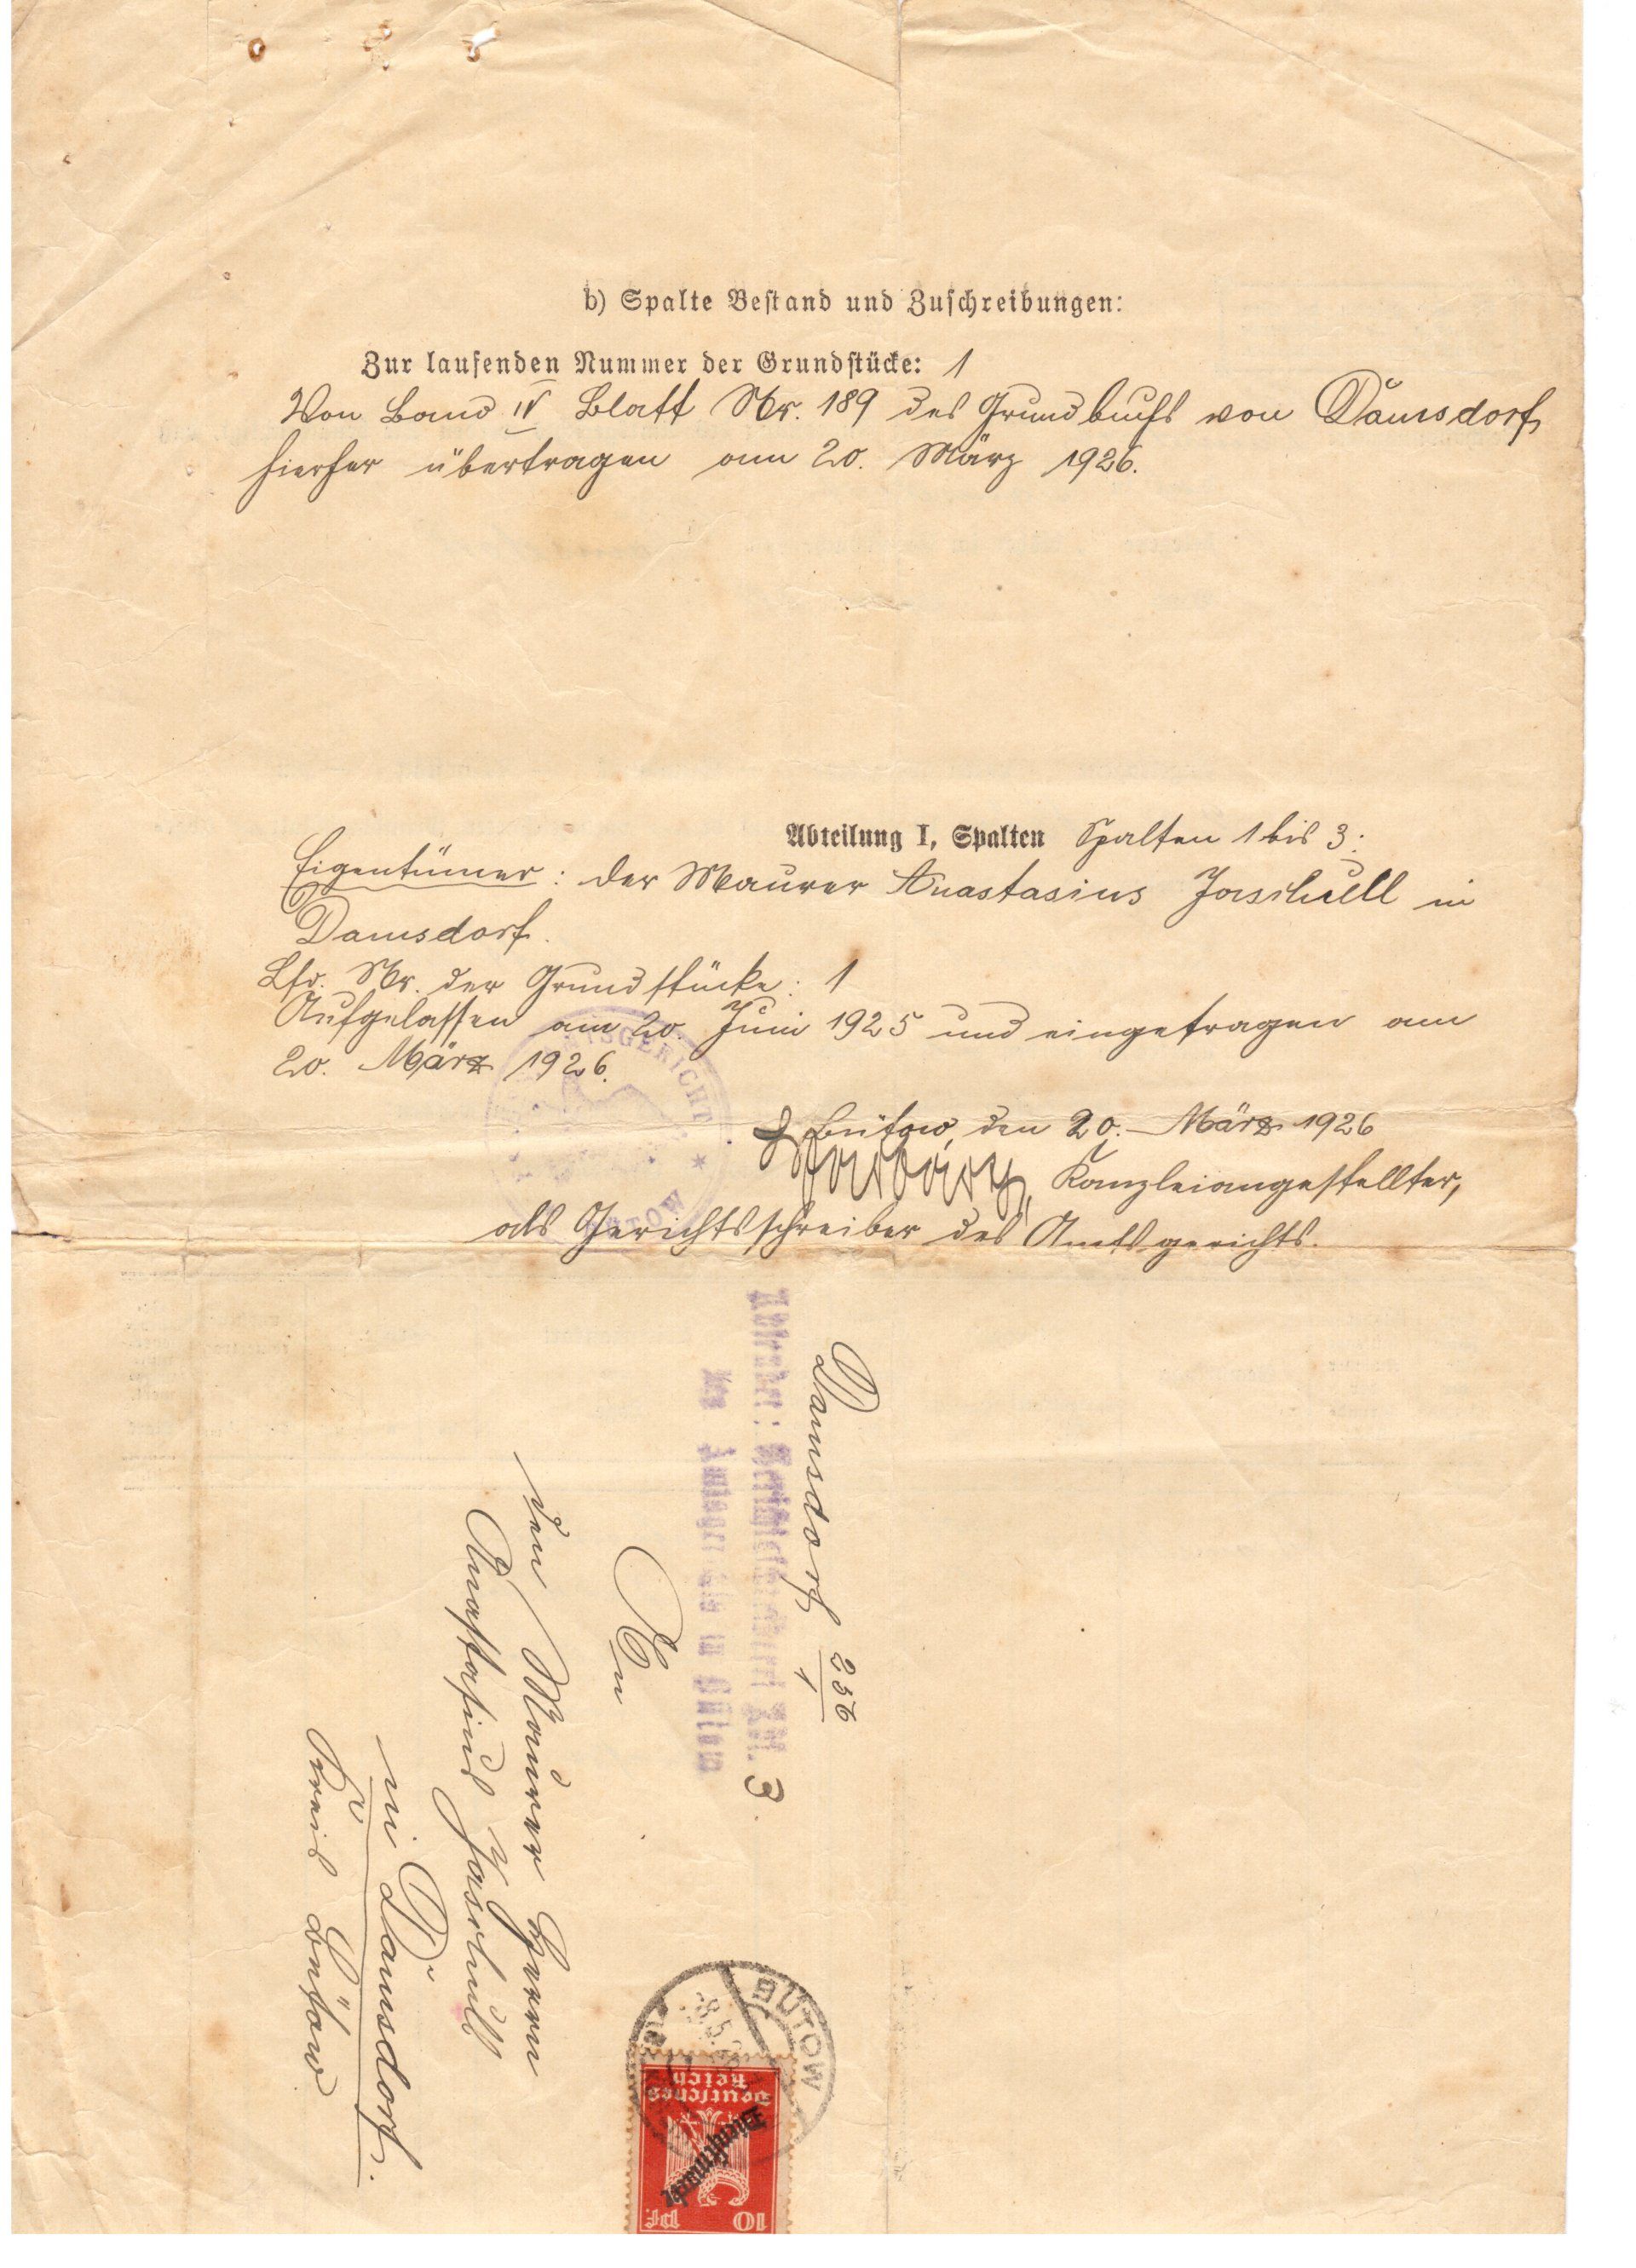 b) Spalte Bestand und Zuschreibungen:
Zur laufenden Nummer der Grundstücke: 1
Von Band IV Blatt Nr. 189 des Grundbuchs von Damsdorf
hierher übertragen am 20. März 1926.
Abteilung I, Spalten Spalten 1 bis 3:
Eigentümer: der Maurer Anastasius Jaschull in
Damsdorf.
Lfd. Nr. der Grundstücke: 1
Aufgelassen am 20. Juni 1925 und eingetragen am
20. März 1926.
Bütow, den 20. März 1926
Kanzleiangestellter,
als Gerichtsschreiber des Amtsgerichts.
Damsdorf 256
1
Absender: Gerichtsschreiberei Abt. 3.
des Amtsgerichts in Bütow
An
den Maurer Herrn
Anastasius Jaschull
in Damsdorf.
Kreis Bütow
BÜTOW
Deutsches
Reich
Dienstmarke
10 Pf